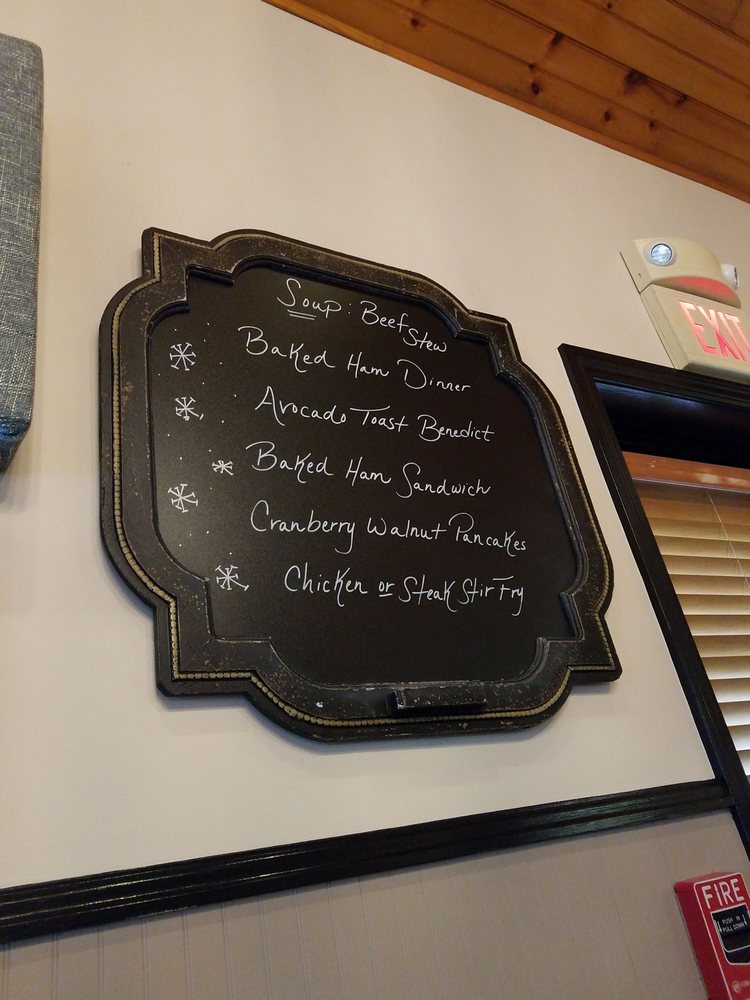 Soup: Beef Stew
Baked Ham Dinner
Avocado Toast Benedict
Baked Ham Sandwich
Cranberry Walnut Pancakes
Chicken or Steak Stir Fry
EXIT
FIRE
PUSH IN
PULL DOWN